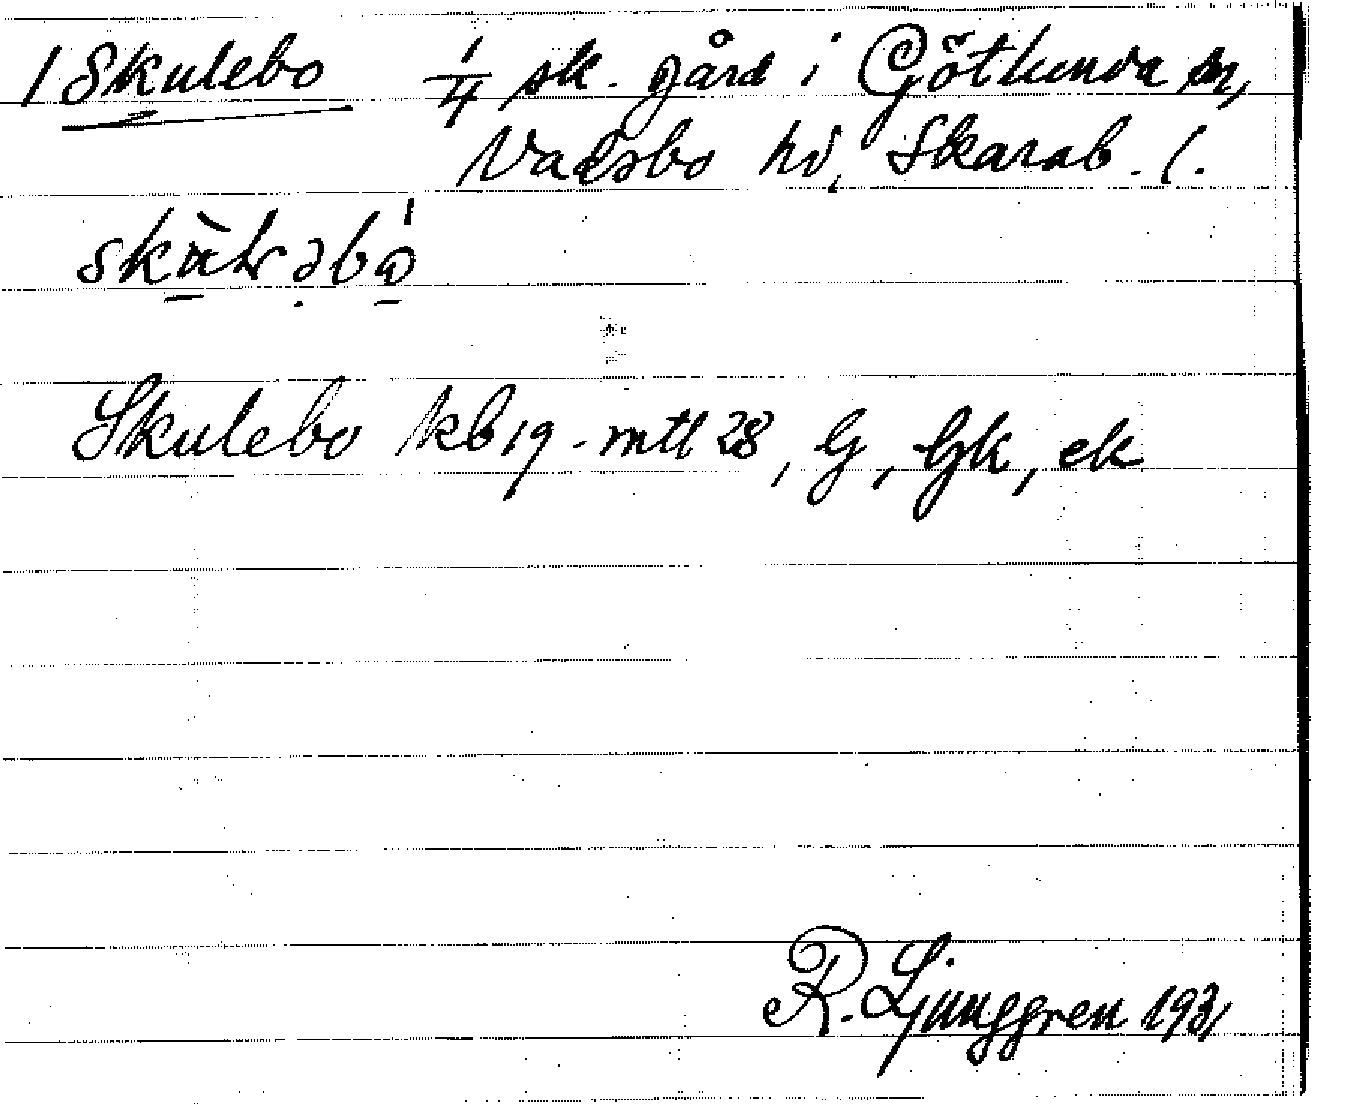 1 Skulebo 1/4 sk. gård i Götlunda sn,
Vadsbo hd, Skarab. l.
Skulebo kb 19 - mtl 28, G, Gk, ek
R. Ljunggren 1931